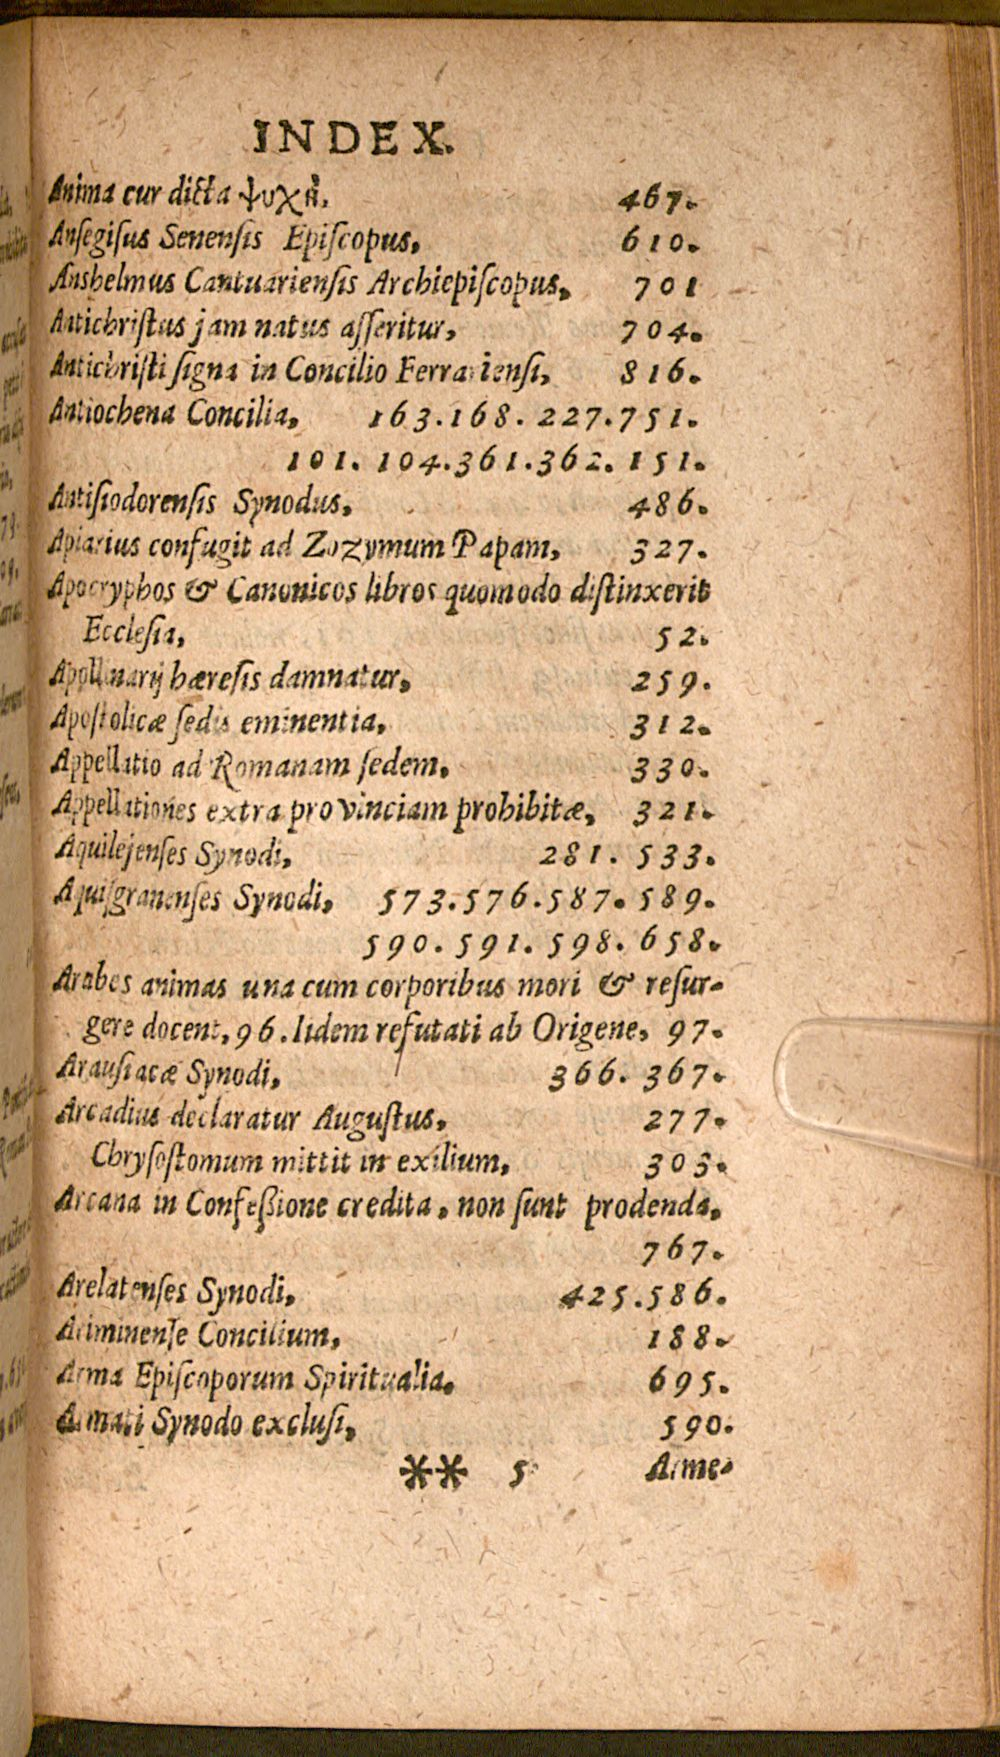 INDEX.
Anima cur dicta ψυχή. 467.
Anſegiſus Senenſis Epiſcopus, 610.
Anshelmus Cantuarienſis Archiepiſcopus, 701
Antichriſtus jam natus aſſeritur, 704.
Antichriſti ſigna in Concilio Ferrarienſi, 816.
Antiochena Concilia, 163.168.227.751.
101. 104.361.362. 151.
Antiſiodorenſis Synodus, 486.
Apiarius confugit ad Zozymum Papam, 327.
Apocryphos & Canonicos libros quomodo diſtinxerit
Eccleſia, 52.
Apollinarij hæreſis damnatur, 259.
Apoſtolicæ ſedis eminentia, 312.
Appellatio ad Romanam ſedem, 330.
Appellationes extra provinciam prohibitæ, 321.
Aquilejenſes Synodi, 281. 533.
Aquiſgranenſes Synodi, 573.576.587.589.
590.591.598.658.
Arabes animas una cum corporibus mori & reſur-
gere docent, 96. Iidem refutati ab Origene, 97.
Arauſiacæ Synodi, 366. 367.
Arcadius declaratur Auguſtus, 277.
Chryſoſtomum mittit in exilium, 303.
Arcana in Confeßione credita, non ſunt prodenda,
767.
Arelatenſes Synodi, 425.586.
Ariminenſe Concilium, 188.
Arma Epiſcoporum Spiritualia, 695.
Armati Synodo excluſi, 590.
** 5 Arme-